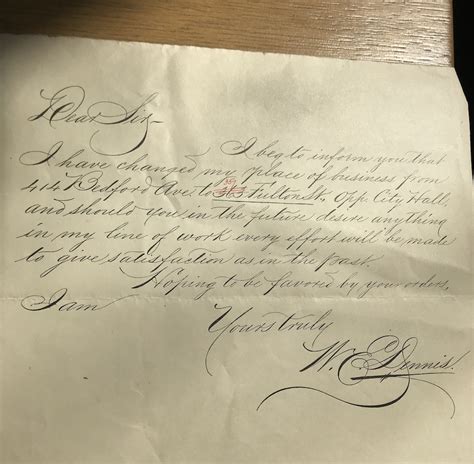 Dear Sir—
I beg to inform you that
I have changed my place of business from
414 Bedford Ave. to Fulton St., Opp. City Hall,
and should you in the future desire anything
in my line of work every effort will be made
to give satisfaction as in the past.
Hoping to be favored by your orders,
I am
Yours truly
W. E. Dennis.